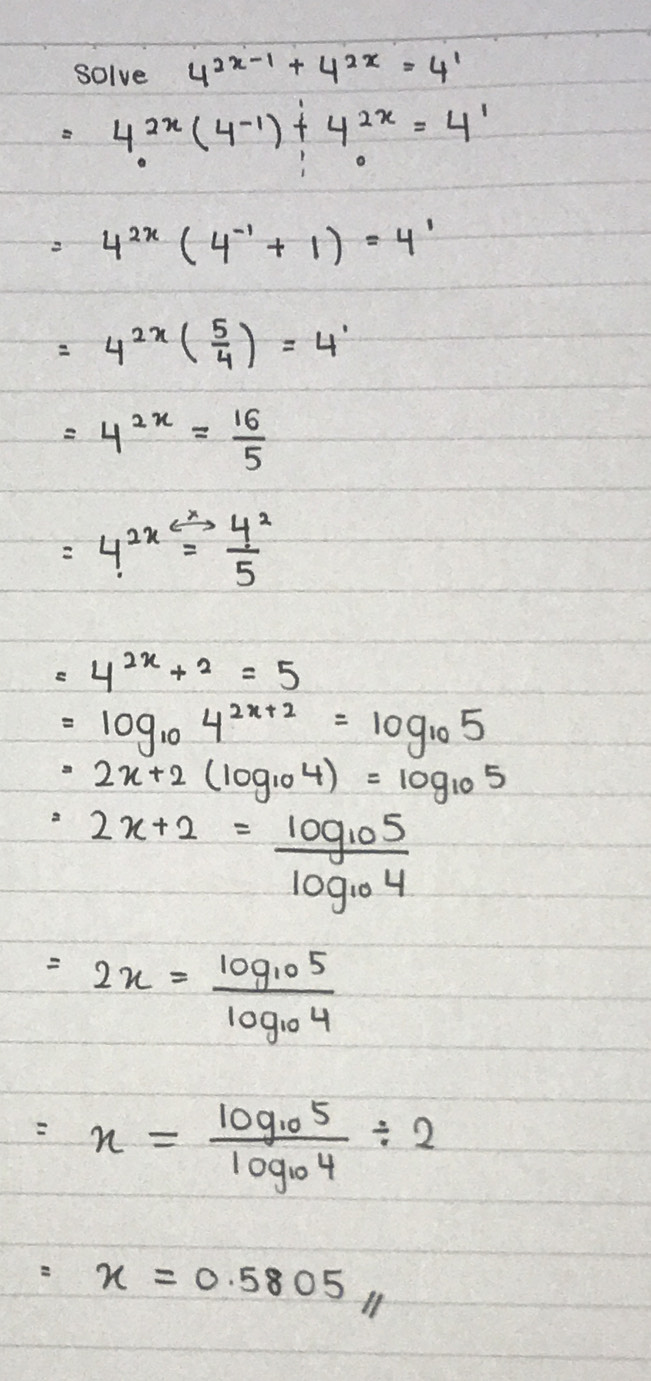 Solve 4^{2x-1} + 4^{2x} = 4^1
= 4^{2x} (4^{-1}) + 4^{2x} = 4^1
= 4^{2x} (4^{-1} + 1) = 4^1
= 4^{2x} (5/4) = 4^1
= 4^{2x} = 16/5
= 4^{2x} = 4^2/5
x
= 4^{2x + 2} = 5
= log₁₀ 4^{2x+2} = log₁₀ 5
= 2x+2 (log₁₀ 4) = log₁₀ 5
= 2x+2 = log₁₀ 5 / log₁₀ 4
= 2x = log₁₀ 5 / log₁₀ 4
= x = log₁₀ 5 / log₁₀ 4 ÷ 2
= x = 0.5805 //